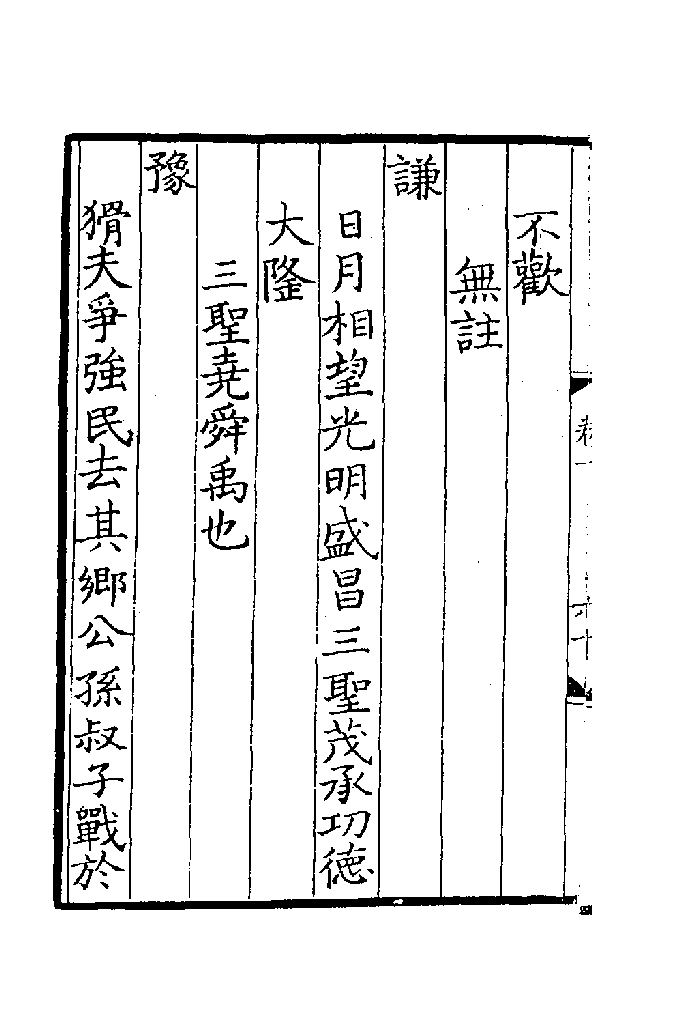 不歡
無註
謙
日月相望光明盛昌三聖茂承功德
大隆
三聖堯舜禹也
豫
猾夫爭強民去其鄉公孫叔子戰於